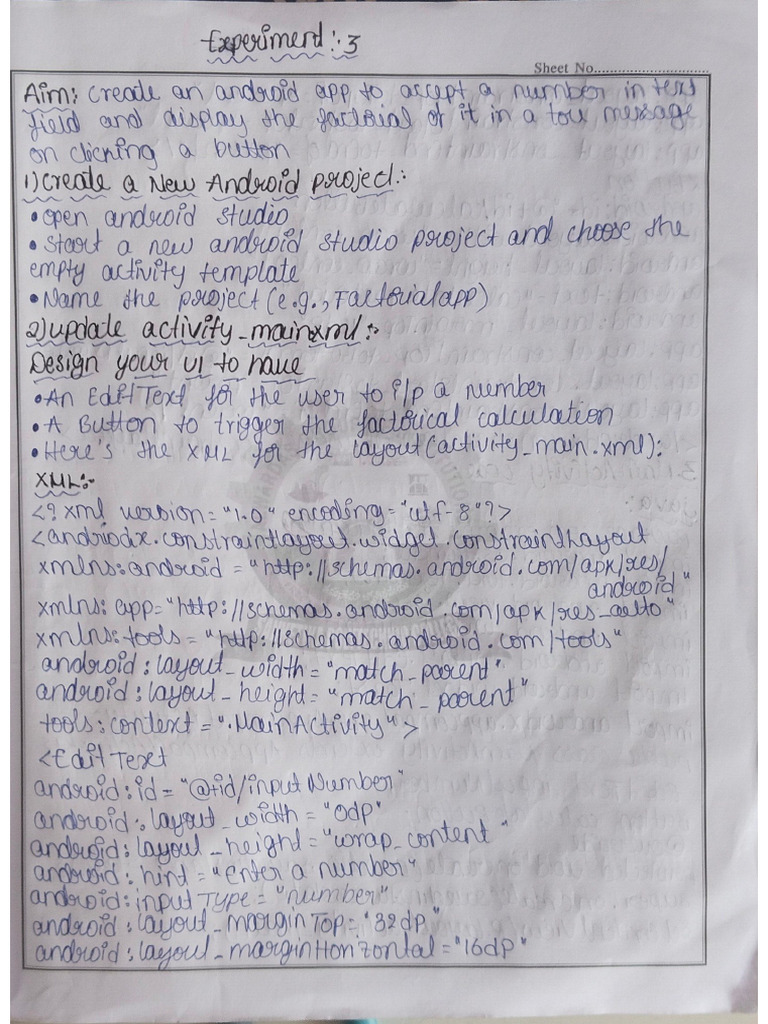 Experiment:- 3
Sheet No.
Aim: create an android app to accept a number in text
field and display the factorial of it in a tou message
on clicking a button
1) create a New Android project:-
• open android studio
• Start a new android studio project and choose the
empty activity template
• Name the project (e.g., Factorialapp)
2) update activity_main.xml:-
Design your UI to have
• An EditText for the user to i/p a number
• A Button to trigger the factorical calculation
• Here's the XML for the layout (activity_main.xml):
XML:-
<? xml version = "1.0" encoding = "utf-8"?>
<andriodx.constraintlayout.widget.constraintLayout
xmlns:android = "http://schemas.android.com/apk/res/
android"
xmlns: app= "http://schemas.android.com/apk/res_auto"
xmlns:tools = "http://schemas.android.com/tools"
android:layout_width = "match_parent"
android:layout_height = "match_parent"
tools:context = ".MainActivity" >
<EditText
android:id = "@+id/input Number"
android:layout_width = "0dp"
android:layout_height = "wrap_content"
android:hint = "enter a number"
android:inputType = "number"
android:layout_marginTop= "32dp"
android:layout_marginHorizontal = "16dp"